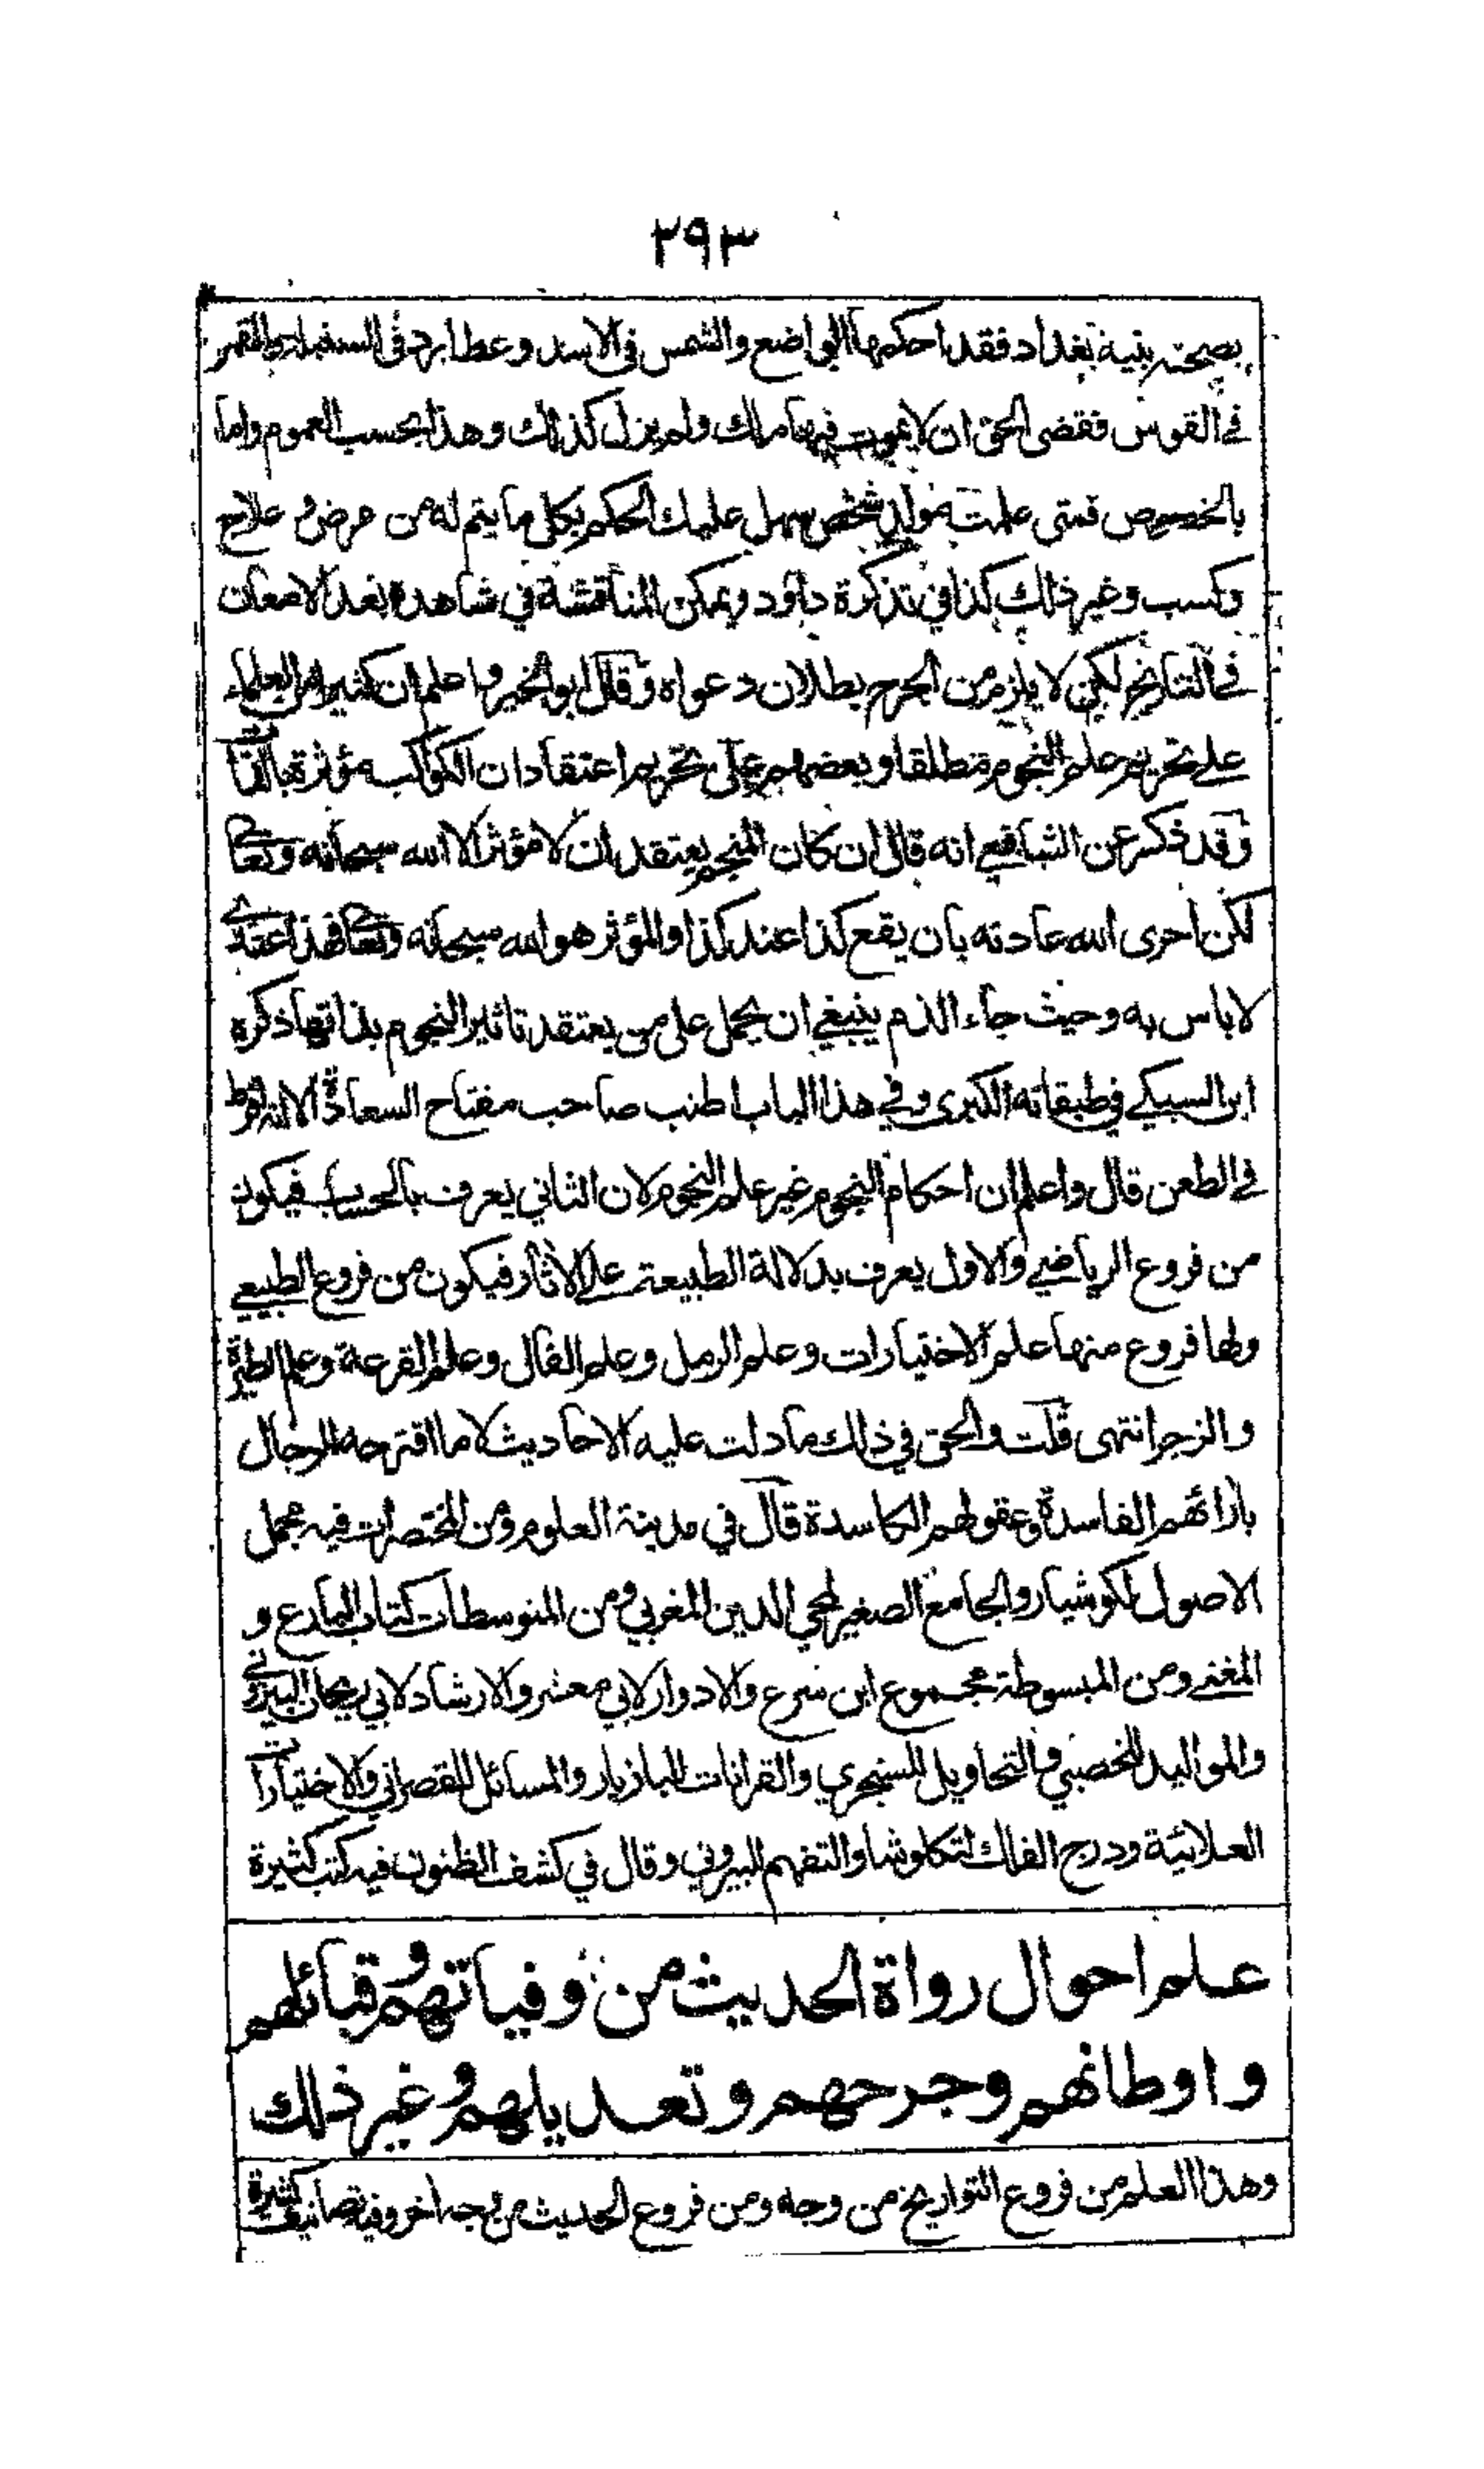 ٢٩٣
بصحته بنية بغداد فقد احكمها الواضع والشمس في الاسد وعطارد في السنبلة والقمر
في القوس فقضى الحق ان لا يموت فيها ملك ولم يزل كذلك وهذا بحسب العموم واما
بالخصوص فمتى علمت مولد شخص سهل عليك الحكم بكل ما يتم له من مرض و علاج
وكسب وغير ذلك كذا في تذكرة داود ويمكن المناقشة في شاهده بعد الامعان
في التاريخ لكن لا يلزم من الجرح بطلان دعواه وقال ابو الخير واعلم ان كثيرا من العلماء
على تحريم علم النجوم مطلقا وبعضهم على تحريم اعتقاد ان الكواكب مؤثرة بالذات
وقد ذكر عن الشافعي انه قال ان كان المنجم يعتقد ان لا مؤثر الا الله سبحانه وتعالى
لكن اجرى الله عادته بان يقع كذا عند كذا والمؤثر هو الله سبحانه وتعالى فهذا عندي
لا باس به وحيث جاء الذم ينبغي ان يحمل على من يعتقد تاثير النجوم بذاتها ذكره
ابن السبكي في طبقاته الكبرى وفي هذا الباب اطنب صاحب مفتاح السعادة الا انه افرط
في الطعن قال واعلم ان احكام النجوم غير علم النجوم لان الثاني يعرف بالحساب فيكون
من فروع الرياضي والاول يعرف بدلالة الطبيعة على الاثار فيكون من فروع الطبيعي
ولها فروع منها علم الاختيارات وعلم الرمل وعلم الفال وعلم القرعة وعلم الطيرة
والزجر انتهى قلت والحق في ذلك ما دلت عليه الاحاديث لا ما اقترحه الرجال
بارائهم الفاسدة وعقولهم الكاسدة قال في مدينة العلوم ومن المختصرات فيه مجمل
الاصول لكوشيار والجامع الصغير لمحي الدين المغربي ومن المتوسطات كتاب البارع و
المغني ومن المبسوطة مجموع ابن شرع والادوار لابي معشر والارشاد لابي ريحان البيروني
والمواليد للخصبي والتحاويل للسنجري والقرانات للبازيار والمسائل للقصراني والاختيارات
العلائية ودرج الفلك لتنكلوشا والتفهيم للبيروني وقال في كشف الظنون فيه كتب كثيرة
علم احوال رواة الحديث من وفياتهم و قبائلهم
واوطانهم وجرحهم وتعديلهم و غير ذلك
وهذا العلم من فروع التواريخ من وجه ومن فروع الحديث من وجه اخر وفيه تصانيف كثيرة